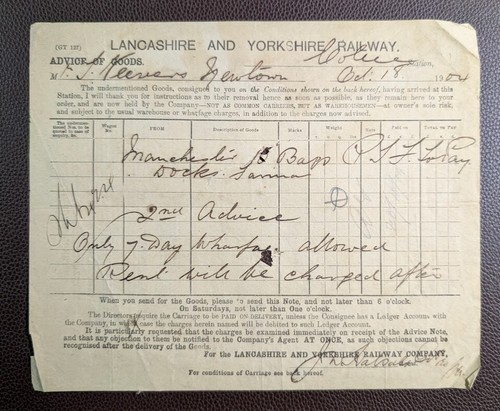 (GT 127)
LANCASHIRE AND YORKSHIRE RAILWAY.
ADVICE OF GOODS. Colne Station,
M T. J. Newtown Oct. 18 1904
The undermentioned Goods, consigned to you on the Conditions shown on the back hereof, having arrived at this
Station, I will thank you for instructions as to their removal hence as soon as possible, as they remain here to your
order, and are now held by the Company—NOT AS COMMON CARRIERS, BUT AS WAREHOUSEMEN—at owner's sole risk,
and subject to the usual warehouse or wharfage charges, in addition to the charges now advised.
Wagon No. FROM Description of Goods. Marks Weight Rate Paid on
Manchester Bags
Docks
2nd Advice
Only 7 Day Wharfage allowed
Rent will be charged after
When you send for the Goods, please to send this Note, and not later than 6 o'clock.
On Saturdays, not later than One o'clock.
The Directors require the Carriage to be PAID ON DELIVERY, unless the Consignee has a Ledger Account with
the Company, in which case the charges herein named will be debited to such Ledger Account.
It is particularly requested that the charges be examined immediately on receipt of the Advice Note,
and that any objection to them be notified to the Company's Agent AT ONCE, as such objections cannot be
recognised after the delivery of the Goods.
For the LANCASHIRE AND YORKSHIRE RAILWAY COMPANY,
For conditions of Carriage see back hereof.